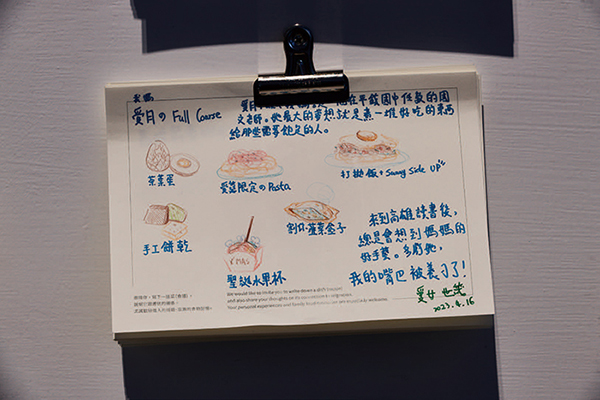 我媽
愛月の Full Coarse
他在平鎮國中任教的國
文老師。她最大的夢想就是煮一堆好吃的東西
給那些需要飽足的人。
茶葉蛋
愛誕限定の Pasta
打拋飯 + Sunny Side Up
手工餅乾
割包
韮菜盒子
XMAS
聖誕水果杯
來到高雄讀書後,
總是會想到媽媽的
好手藝。多虧她,
我的嘴巴被養刁了!
愛女
2023.4.16
We would like to invite you to write down a dish
and also share your thoughts on
Your personal experiences and family
are especially welcome.